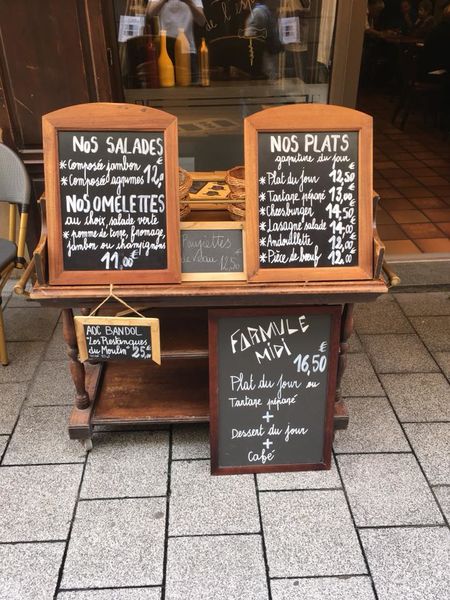 NOS SALADES
* Composée jambon
* Composée agrumes 12,0€
NOS OMELETTES
au choix, salade verte
* pomme de terre, fromage,
jambon ou champignons
11,00€
NOS PLATS
du jour
* Plat du jour 12,50€
* Tartare préparé 13,00
* Cheesburger 14,50€
* Lasagne salade 14,00€
* Andouillette 12,00€
* Pièce de bœuf 12,€
Paupiettes
de Veau 12,5€
AOC BANDOL
"Les Restanques
du Moulin" 25,00€
FARMULE
MIDI
16,50€
Plat du jour ou
Tartare préparé
+
Dessert du jour
+
Café